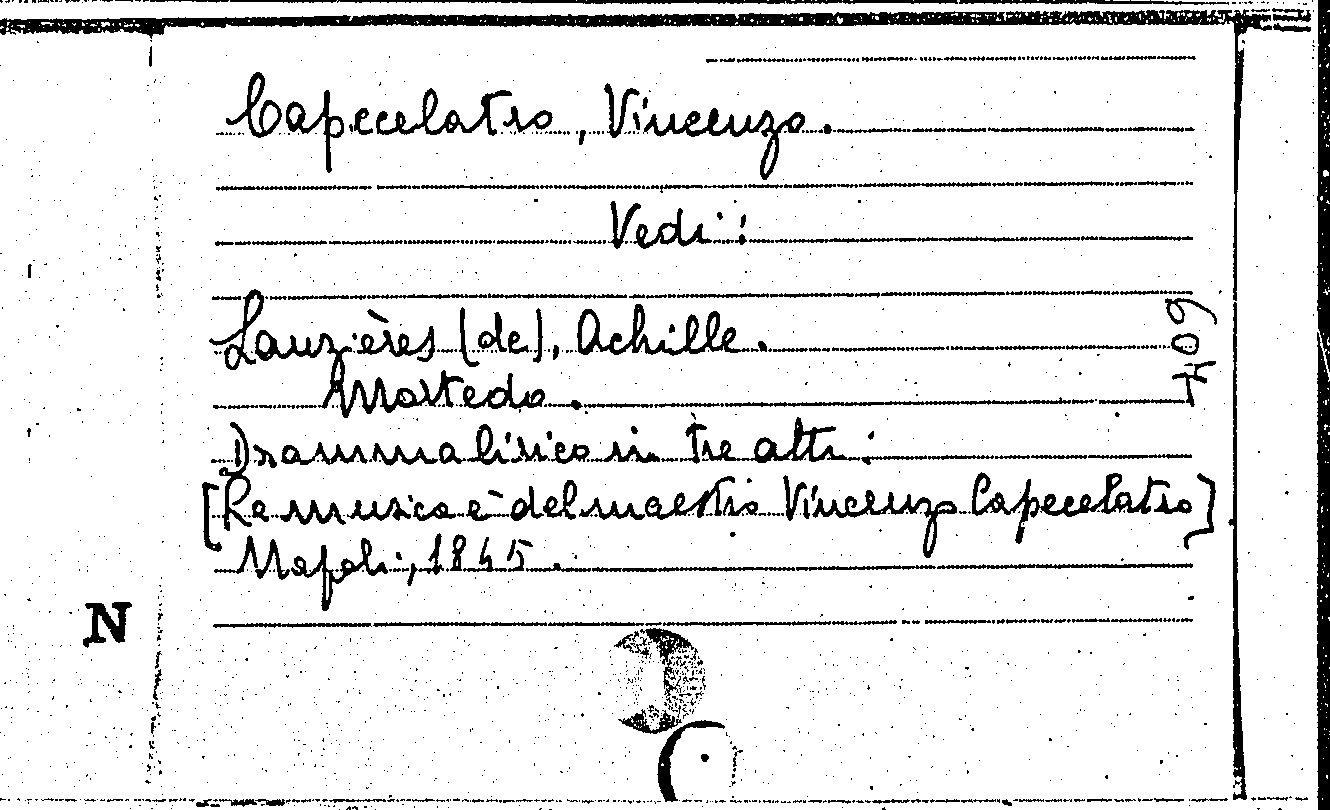 Capecelatro, Vincenzo.
Vedi:
Lauzières (de), Achille.
Mortedo.
Dramma lirico in tre atti:
[La musica è del maestro Vincenzo Capecelatro]
Napoli, 1845.
409
N